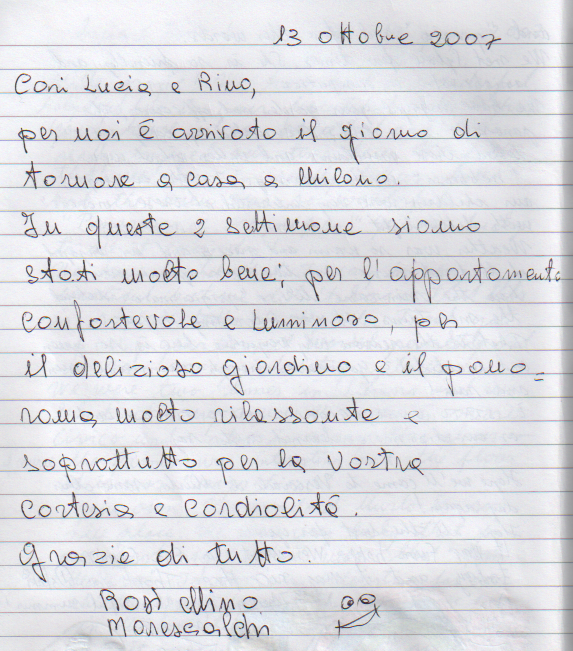 13 ottobre 2007
Cari Lucia e Rino,
per noi è arrivato il giorno di
tornare a casa a Milano.
In queste 2 settimane siamo
stati molto bene; per l'appartamento
confortevole e luminoso, per
il delizioso giardino e il pano=
rama molto rilassante e
soprattutto per la vostra
cortesia e cordialità.
Grazie di tutto.
Rosi e Mino
Marescalchi